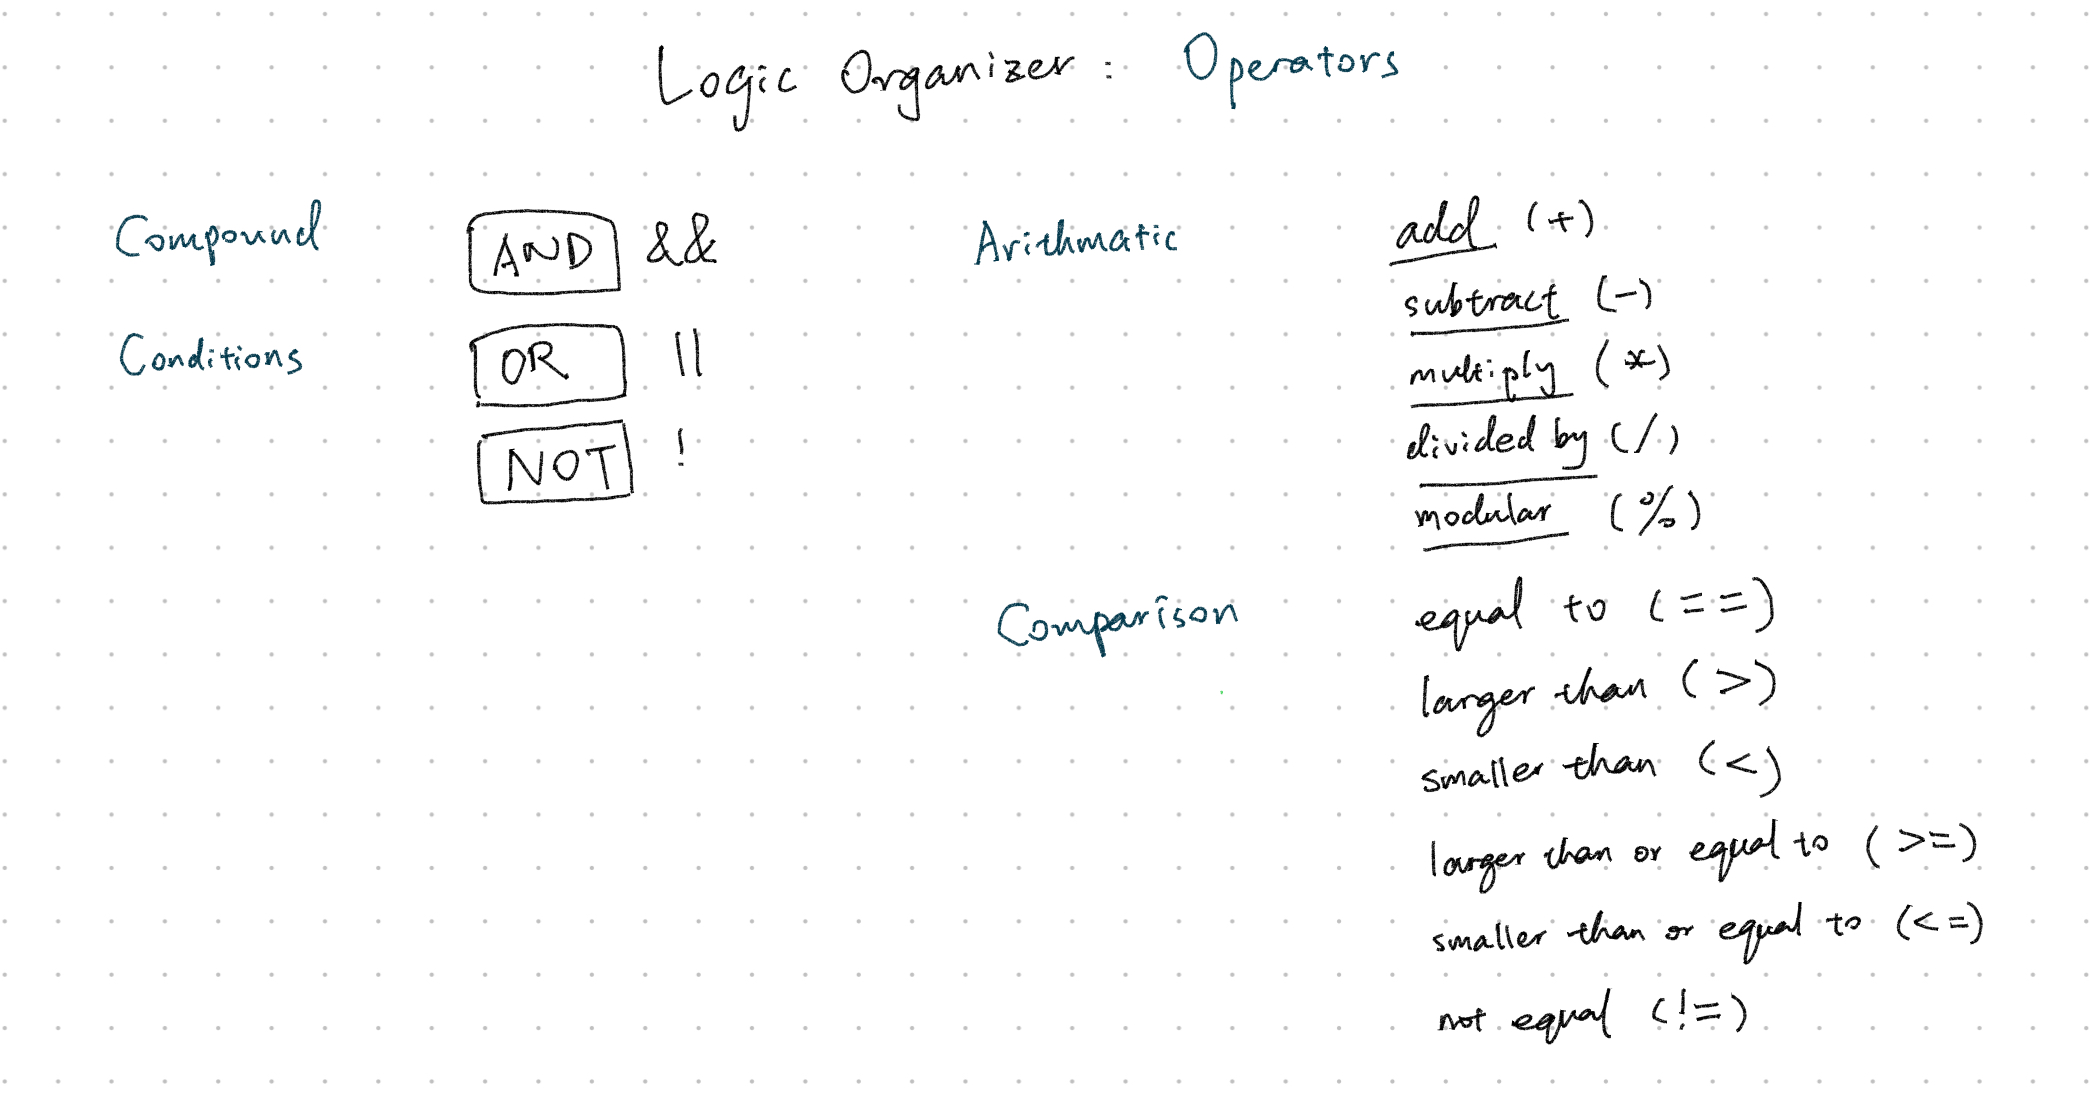 Logic Organizer : Operators
Compound
Conditions
AND &&
OR ||
NOT !
Arithmatic
add (+)
subtract (-)
multiply (*)
divided by (/)
modular (%)
Comparison
equal to (==)
larger than (>)
smaller than (<)
larger than or equal to (>=)
smaller than or equal to (<=)
not equal (!=)